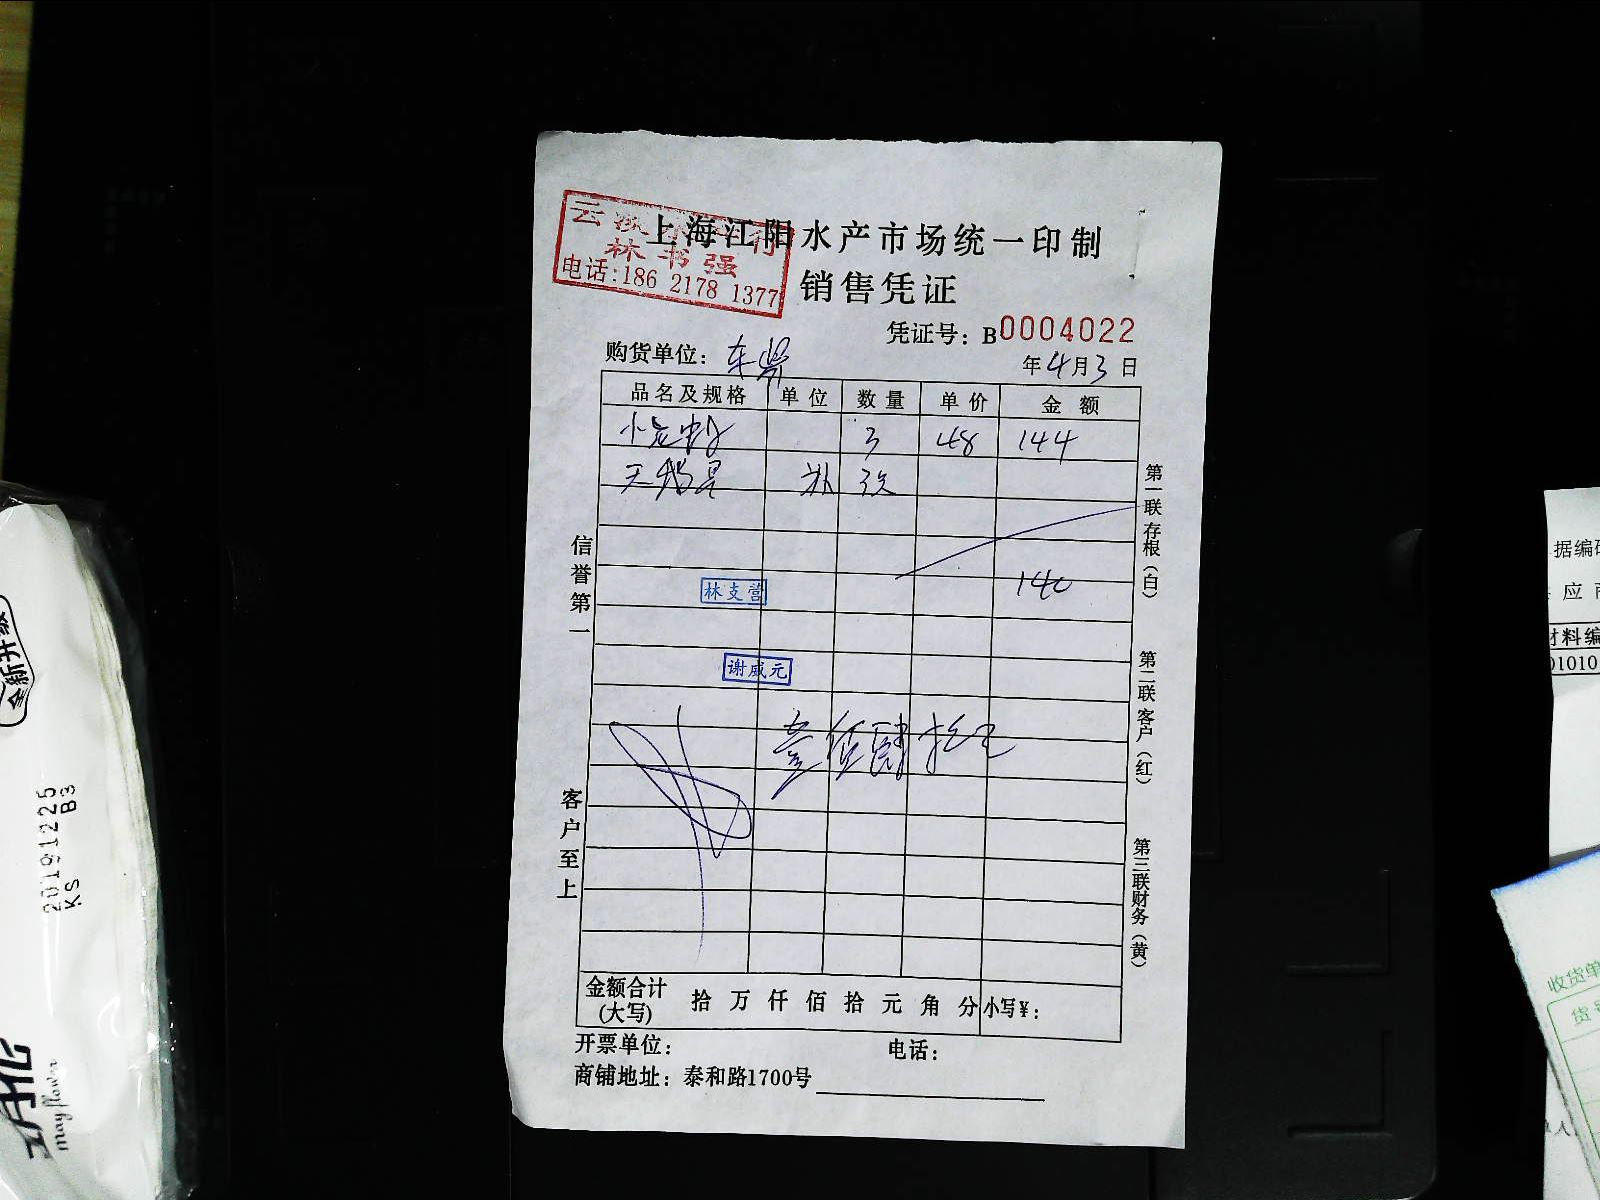 云
林书强
电话:186 2178 1377
上海江阳水产市场统一印制
销售凭证
凭证号: B0004022
购货单位: 东
年4月3日
品名及规格 单位 数量 单价 金额
小龙虾 3 48 144
天鹅蛋 补 3次
140
林支营
谢威元
叁佰肆拾元
信誉第一
客户至上
第一联存根(白)
第二联客户(红)
第三联财务(黄)
金额合计(大写) 拾万仟佰拾元角分 小写¥:
开票单位: 电话:
商铺地址: 泰和路1700号
全新升级
20191225
KS B3
May flower
据编
应商
材料编
01010
收货单
货号